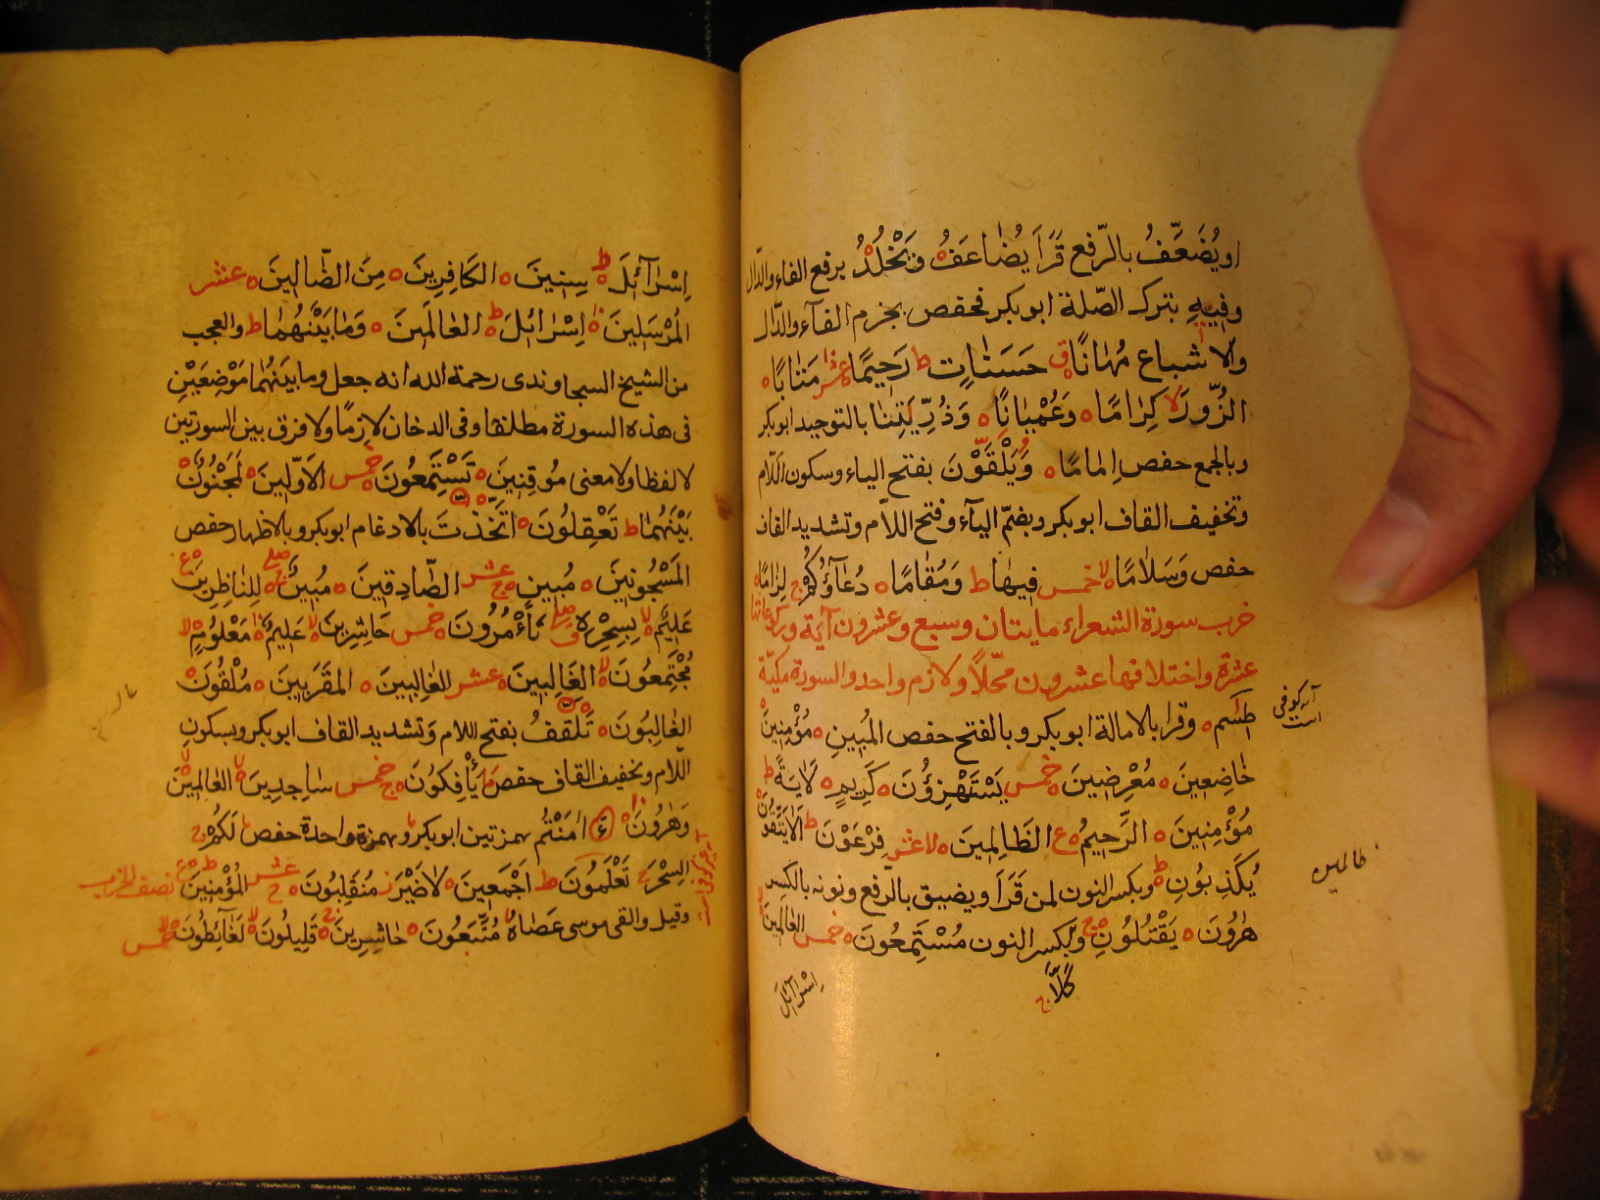 اويُضَعَّفُ بالرّفع قَرَاَ يُضَاعَفُ وَيَخْلُدُ برفع الفاء والدّال
وفِيهِ بترك الصّلة ابوبكر فحفص بجزم الفآء والدّال
والاشباع مُهَانًا ق حَسَنَاتٍ ط رَحِيمًا عشر مَتَابًا ه
الزُّورَ لا كِرَامًا ه وَعُمْيَانًا ه وَذُرِّيَّتِنَا بالتوحيد ابوبكر
وبالجمع حفص اِمَامًا ه وَيَلْقَوْنَ بفتح الياء وسكون اللّام
وتخفيف القاف ابوبكر وبضمّ اليآء وفتح اللّام وتشديد القاف
حفص وَسَلَامًا ه لا خمس فِيهَا ط وَمُقَامًا ه دُعَآؤُكُمْ ج لِزَامًا ه
حزب سورة الشعراء مايتان وسبع وعشرون آية
عشرة واختلافها عشرون محلّاً ولازم واحد والسورة مكيّة
طسم ه وقرا بالامالة ابوبكر وبالفتح حفص المُبِينِ ه مُؤْمِنِينَ
آيه كوفى است
خَاضِعِينَ ه مُعْرِضِينَ خمس يَسْتَهْزِؤُنَ ه كَرِيمٍ ه لَاٰيَةً ط
مُؤْمِنِينَ ه الرَّحِيمُ ع الظَّالِمِينَ ه لا عشر فِرْعَوْنَ ط اَلَا يَتَّقُونَ
يُكَذِّبُونِ ط وبكسر النون لمن قَرَاَ ويضيق بالرفع ونونه بالكسر
هٰرُونَ ه يَقْتُلُونِ ج وبكسر النون مُسْتَمِعُونَ ه خمس العٰالَمِينَ
كَلَّا ج
اِسْرَآئِلَ
اِسْرَآئِلَ ط سِنِينَ ه الكَافِرِينَ ه مِنَ الضَّالِّينَ ه عشر
المُرْسَلِينَ ه اِسْرَائِلَ ط العَالَمِينَ ه وَمَا بَيْنَهُمَا ط والعجب
من الشيخ السجاوندى رحمة الله انه جعل وما بينهما مَوْضِعَيْنِ
فى هذه السورة مطلقا وفى الدخان لازمًا ولا فرق بين السورتين
لا لفظا ولا معنى مُوقِنِينَ ه تَسْتَمِعُونَ خمس الاَوَّلِينَ ه لَمَجْنُونٌ
بَيْنَهُمَا ط تَعْقِلُونَ ه اتَّخَذْتَ بالادغام ابوبكر وبالاظهار حفص
المَسْجُونِينَ ه مُبِينٍ ج عشر الصَّادِقِينَ ه مُبِينٌ ج صلى لِلنَّاظِرِينَ ع
عَلِيمٌ لا بِسِحْرِهِ ق صلى تَأْمُرُونَ ه خمس حَاشِرِينَ ه لا عَلِيمٍ ه مَعْلُومٍ ه لا
مُجْتَمِعُونَ ه لا الغَالِبِينَ عشر الغَالِبِينَ ه المُقَرَّبِينَ ه مُلْقُونَ
الغَالِبُونَ ه تَلَقَّفُ بفتح اللام وَتشديد القاف ابوبكر وبسكون
اللّام وتخفيف القاف حفص يَأْفِكُونَ ه ج خمس سَاجِدِينَ ه لا العَالَمِينَ لا
وَهٰرُونَ ه ءَ امَنْتُم بهمزتين ابوبكر وبهمزة واحدة حفص لَكُمْ ج
السِّحْرَ ج تَعْلَمُونَ ط اَجْمَعِينَ ه لَاضَيْرَ ز مُنْقَلِبُونَ ه ج عشر المُؤْمِنِينَ ه ط ع نصف الحزب
وقيل والقى موسى عَصَاهُ مُتَّبَعُونَ ه حَاشِرِينَ ه ج قَلِيلُونَ ه لا لَغَآئِظُونَ ه لا خمس